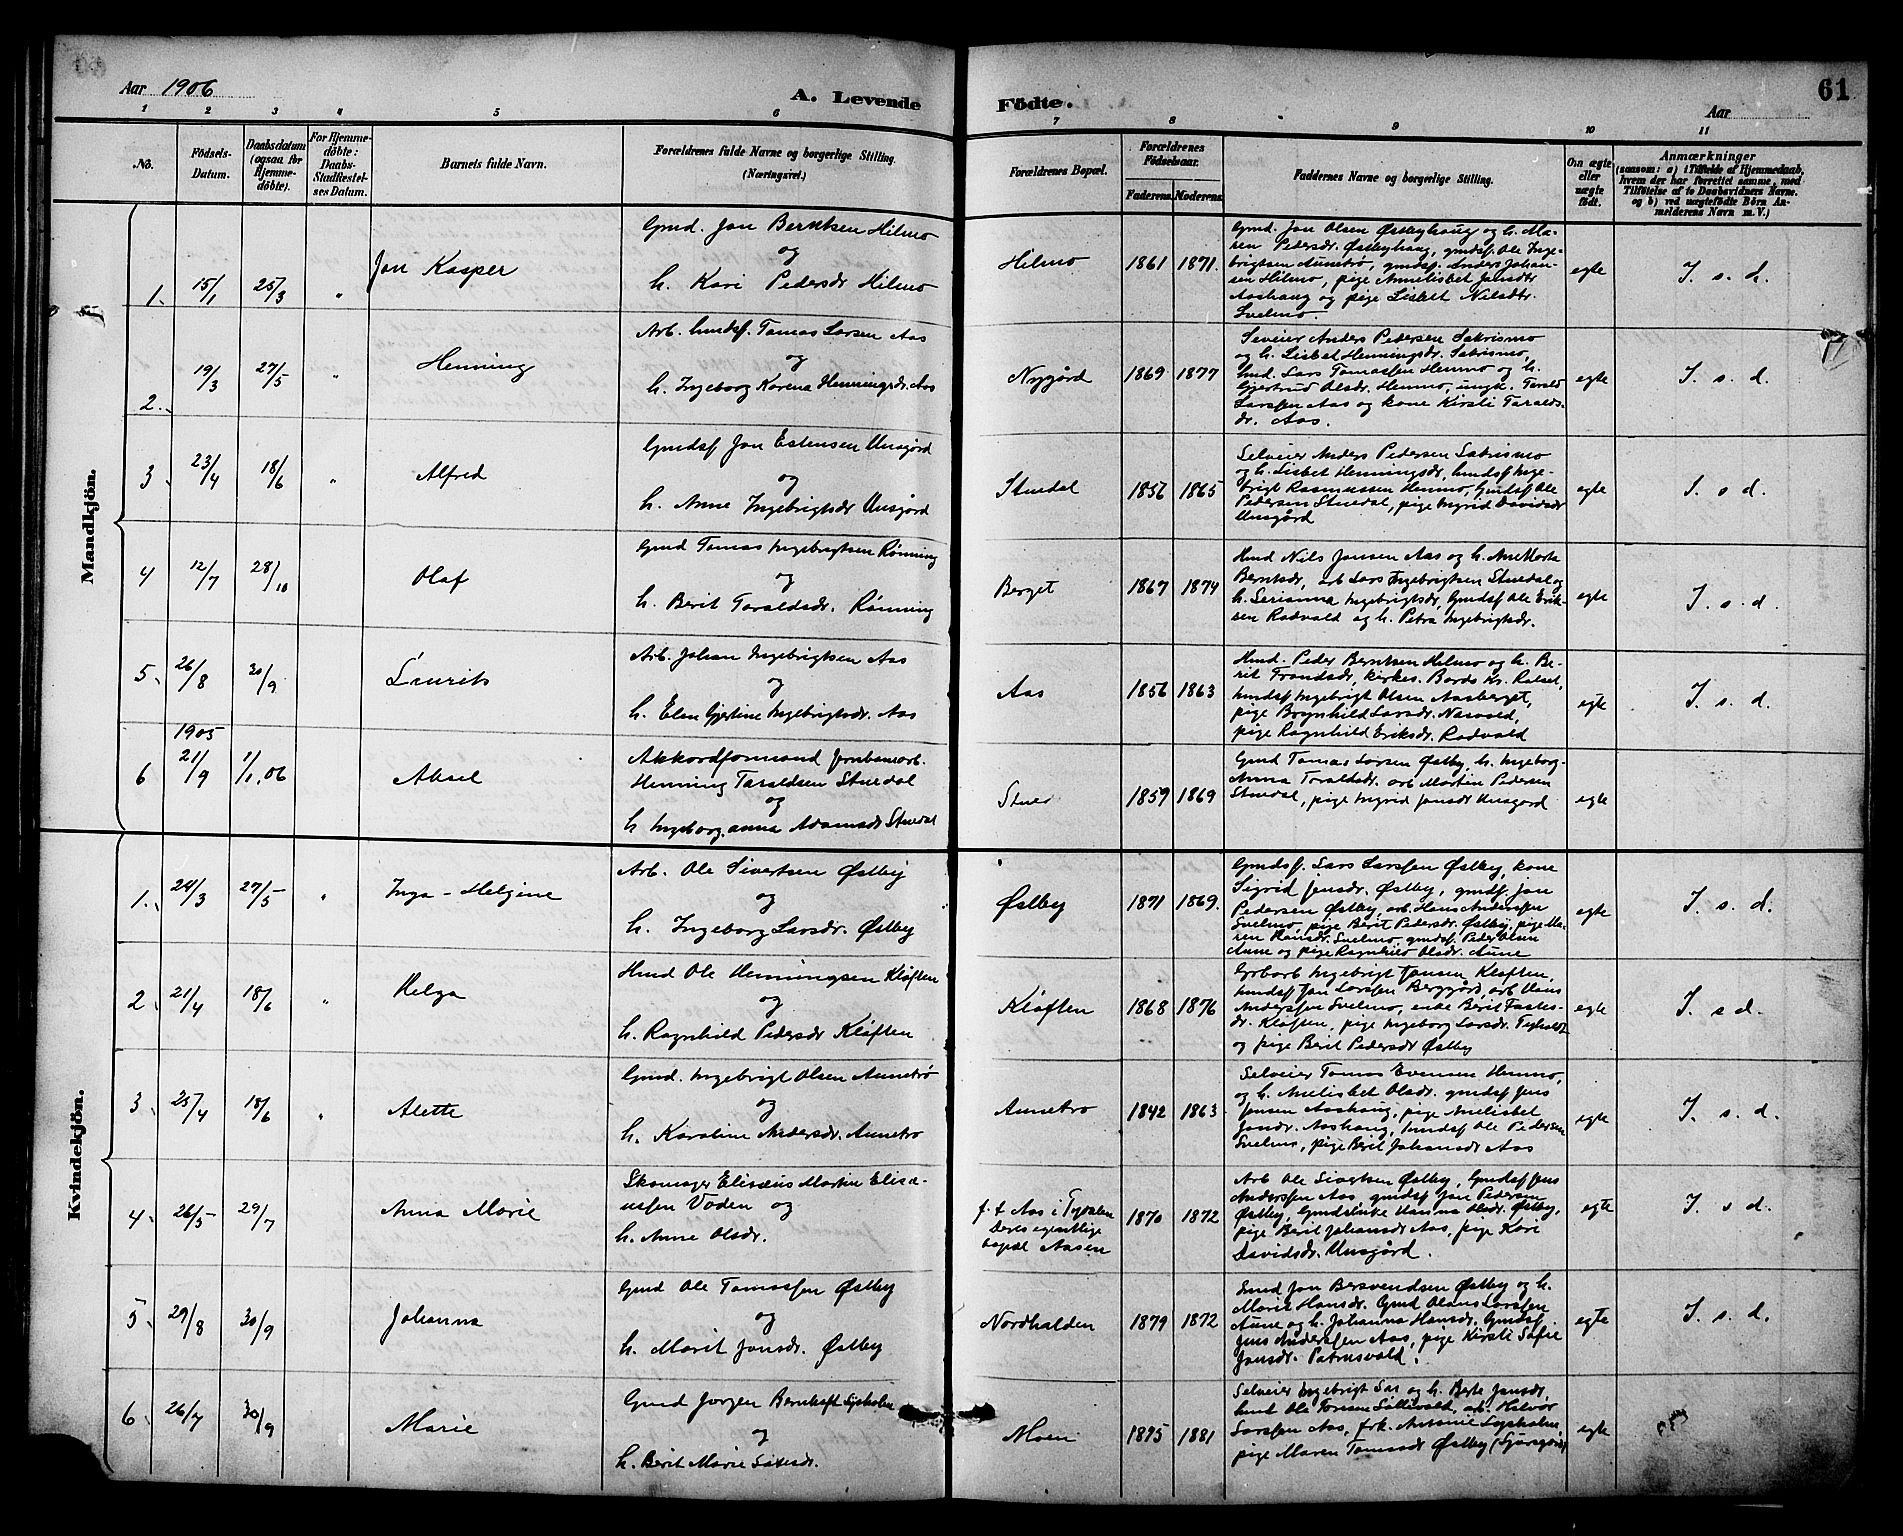 Aar 1906
A. Levende
Födte.
Aar
61
1 2 3 4 5 6 7 8 9 10 11
No.
Födsels-
Datum.
Daabsdatum
(ogsaa for
Hjemme-
döbte).
For Hjemme-
döbte:
Daabs-
Stadfestel-
ses Datum.
Barnets fulde Navn.
Forældrenes fulde Navne og borgerlige Stilling.
(Næringsvei.)
Forældrenes Bopæl.
Forældrenes
Födselsaar.
Faderens. Moderens.
Faddernes Navne og borgerlige Stilling.
Om ægte
eller
uægte
födt.
Anmærkninger
(saasom: a) i Tilfælde af Hjemmedaab,
hvem der har forrettet samme, med
Tilföielse af to Daabsvidners Navne.
og b) ved uægtefödte Börn An-
melderens Navn m. V.)
Mandkjön.
1. 15/1 25/3 "
Jon Kasper
Gmd. Jon Berntsen Hilmo
og
h. Kari Pedersdr Hilmo
Hilmo
1861 1871.
Gmd. Jon Olsen Østbyhaug og h. Ma-
ren Pedersdr. Østbyhaug, gmdsf. Ole Inge-
brigtsen Aunetrø, gmdsf. Anders Johan-
sen Hilmo, pige Annelisbet Jonsdtr
Aashaug og pige Lisbet Nilsdtr.
Svelmo.
egte
I. s. d.
2. 19/3 27/5 "
Henning
Arb. husdsf. Tomas Larsen Aas
og
h. Ingeborg Karena Henningsdr. Aas
Nygård
1869 1877
Seveier Anders Pedersen Sakrismo
og h. Lisbet Henningsdr. Sakrismo,
hmd. Lars Tomassen Hemmo og h.
Gjertrud Olsdr. Hemmo, ungk. Tarald
Larssen Aas og kone Kirsti Taralds-
dr. Aas.
egte
I. s. d.
3. 23/4 18/6 "
Alfred
Gmdsf Jon Estensen Unsgård
og
h. Anne Ingebrigtsdr Unsgård
Stuedal
1856 1865
Selveier Anders Pedersen Sakrismo
og h. Lisbet Henningsdr, husdsf Inge-
brigt Rasmussen Hemmo, Gmdsf Ole
Pedersen Stuedal, pige Ingrid Davidsdr
Unsgård
egte
I. s d.
4 12/7 28/10
Olaf
Gmd Tomas Ingebrigtsen Rønning
og
h. Berit Taraldsdr. Rønning
Berget
1867 1874
Hmd Nils Jonsen Aas og h. Ane Marta
Berntsdr, arb Lars Ingebrigtsen Stuedal og
h. Serianna Ingebrigtsdr, Gmdsf Ole Erik-
sen Rodvald og h. Petra Ingebrigtsdr.
egte
I. s. d.
5. 26/8 30/9
Laurits
Arb. Johan Ingebrigtsen Aas
og
h. Elen Gjertine Ingebrigtsdr. Aas
Aas
1856 1863
Hmd. Peder Berntsen Hilmo og h. Be-
rit Trondsdr, kirkes. Bards hr. Rolset,
husdsf Ingebrigt Olsen Aasberget,
pige Brynhild Larsdr. Næsvold,
pige Ragnhild Eriksdr. Rodvald
egte
I. s. d.
1905
6 21/9 1/1.06
Aksel
Akkordformand Jernbanearb.
Henning Taraldsen Stuedal
og
h Ingeborganna Adamsdr Stuedal
Stued
1859 1869
Gmd Tomas Larsen Østby, h. Ingeborg
Anna Taraldsdr. arb Martin Pedersen
Stuedal, pige Ingrid Jonsdr Unsgård
egte
Kvindekjön.
1. 24/3 27/5 "
Inga-Helgine
Arb. Ole Sivertsen Østby
og
h. Ingeborg Larsdr. Østby
Østby
1871 1869.
Gmdsf. Lars Larssen Østby, kone
Sigrid Jensdr. Østby, gmdsf. Jon
Pedersen Østby, arb. Hans Anderssen
Svelmo, pige Berit Pedersdr. Østby, pige Ma-
ren Hansdr. Svelmo, gmdsf. Peder Olsen
Aune og pige Ragnhild Olsdr. Aune
egte
I. s. d.
2 21/4 18/6 "
Helga
Hmd Ole Henningsen Kløften
og
h. Ragnhild Pedersdr Kløften
Kløften
1868 1876
Grbarb Ingebrigt Jonsen Kløften,
husdsf Jon Larssen Berggård, arb Hans
Anderssen Svelmo, enke Berit Fastes-
dr. Kløften, pige Ingeborg Larsdr.
og pige Berit Pedersdr Østby
egte
I. s d.
3 25/4 18/6 "
Alette
Gmd. Ingebrigt Olsen Aunetrø
og
h. Karoline Andersdr. Aunetrø
Aunetrø
1842 1863
Selveier Tomas Evensen Hemmo,
og h. Anelisbet Olsdr. gmdsf Jens
Jensen Aashaug, pige Anelisbet
Jonsdr. Aashaug, husdsf Ole Pedersen
Svelmo, pige Berit Johansdr Aas
egte
I. s. d.
4. 26/5 29/7
Anna Marie
Skomager Elisæus Martin Elisæ-
ussen Voden og
h. Anne Olsdr.
f. t Aas i Tydalen
Deres egentlige
bopæl Aasen
1870 1872
Arb Ole Sivertsen Østby, Gmdsf Jens
Anderssen Aas, gmdsf Jon Pedersen
Østby, Gmdsenke Hanna Olsdr. Østby,
pige Berit Johansdr Aas, pige Kari
Davidsdr. Unsgård.
egte
I. s d.
5. 29/8 30/9
Johanna
Gmd Ole Tomassen Østby
og
h. Marit Jonsdr. Østby
Nordhalden
1879 1872
Gmd Jon Bersvendsen Østby og h.
Marit Hansdr. Gmd Olaus Larssen
Aune og h. Johanna Hansdr. Gmdsf
Jens Anderssen Aas, pige Kirsti Sofie
Jonsdr. Patrusvold.
egte
I. s. d.
6 26/7 30/9
Marie
Gmd Jørgen Bernhoft Lysholm
og
h. Berit Marie Larsdr.
Moen
1875 1881
Selveier Ingebrigt Aas og h. Berte Jonsdr,
hmd Ole Toresen Sellevald, arb Halvor
Larssen Aas, frk. Antonie Lysholm,
pige Maren Tomasdr Østby
egte